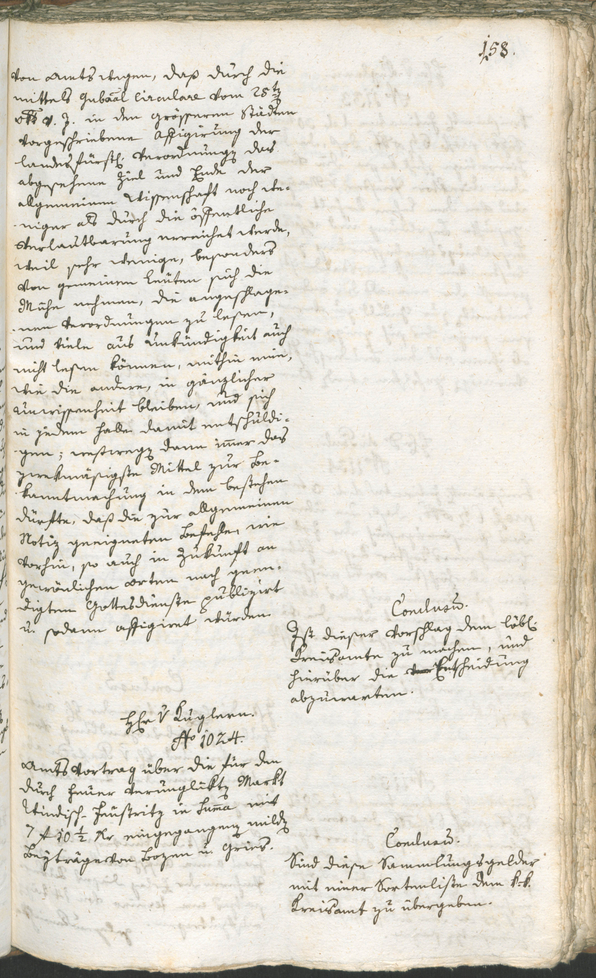 158.
von Amts wegen, daß durch die
mittels Gubāl Circulare vom 28t
v. J. in den grösseren Städten
vorgeschriebene Affigirung der
landesfürstl: Verordnungen das
abgesehene Ziel und Ende der
allgemeinen Wissenschaft noch we-
niger als durch die öffentliche
Verlautbarung erreichet werde,
weil sehr wenige, besonders
von gemeinen Leuten sich die
Mühe nehmen, die angeschlage-
nen Verordnungen zu lesen,
und viele aus Unkündigkeit auch
nicht lesen können, mithin eine,
wie die andere, in gänzlicher
Unwissenheit bleiben, und sich
in jedem Falle damit entschuldi-
gen; weßwegen dann immer das
zwekmäsigste Mittel zur Be-
kanntmachung in dem bestehen
dürfte, daß die zur allgemeinen
Notiz geeigneten Befehle, wie
vorhin, so auch in Zukunft an
gewöhnlichen Orten nach geen-
digtem Gottesdienste publizirt
u. sodann affigiret würden
Conclusum.
Ist dieser Vorschlag dem löbl:
Kreisamte zu machen, und
hierüber die Entscheidung
abzuwarten.
Hr v Kuglern.
No 1024.
Amtsvortrag über die für den
durch Feuer verunglükten Markt
Windisch Feustritz in Summa mit
7 f 10 1/2 Kr eingegangene milde
Beyträge von Bozen u Gries.
Conclusum.
Sind diese Sammlungsgelder
mit einer Sortenliste dem k.k.
Kreisamt zu übergeben.